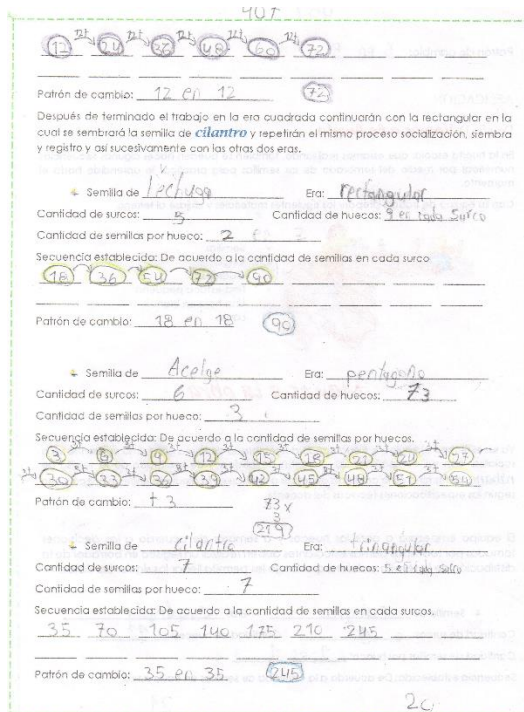 12+ 12+ 12+ 12+ 12+
12 24 36 48 60 72
Patrón de cambio: 12 en 12 72
Después de terminado el trabajo en la era cuadrada continuarán con la rectangular en la
cual se sembrará la semilla de cilantro y repetirán el mismo proceso socialización, siembra
y registro y así sucesivamente con las otras dos eras.
Semilla de lechuga Era: rectangular
Cantidad de surcos: 5 Cantidad de huecos: 9 en cada surco
Cantidad de semillas por hueco: 2
Secuencia establecida: De acuerdo a la cantidad de semillas en cada surco
18 36 54 72 90
Patrón de cambio: 18 en 18 90
Semilla de Acelga Era: pentagono
Cantidad de surcos: 6 Cantidad de huecos: 73
Cantidad de semillas por hueco: 3
Secuencia establecida: De acuerdo a la cantidad de semillas por huecos.
3 6 9 12 15 18 21 24 27
30 33 36 39 42 45 48 51 54
Patrón de cambio: +3 73 x
3
219
Semilla de cilantro Era: triangular
Cantidad de surcos: 7 Cantidad de huecos: 5 en cada surco
Cantidad de semillas por hueco: 7
Secuencia establecida: De acuerdo a la cantidad de semillas en cada surcos.
35 70 105 140 175 210 245
Patrón de cambio: 35 en 35 245